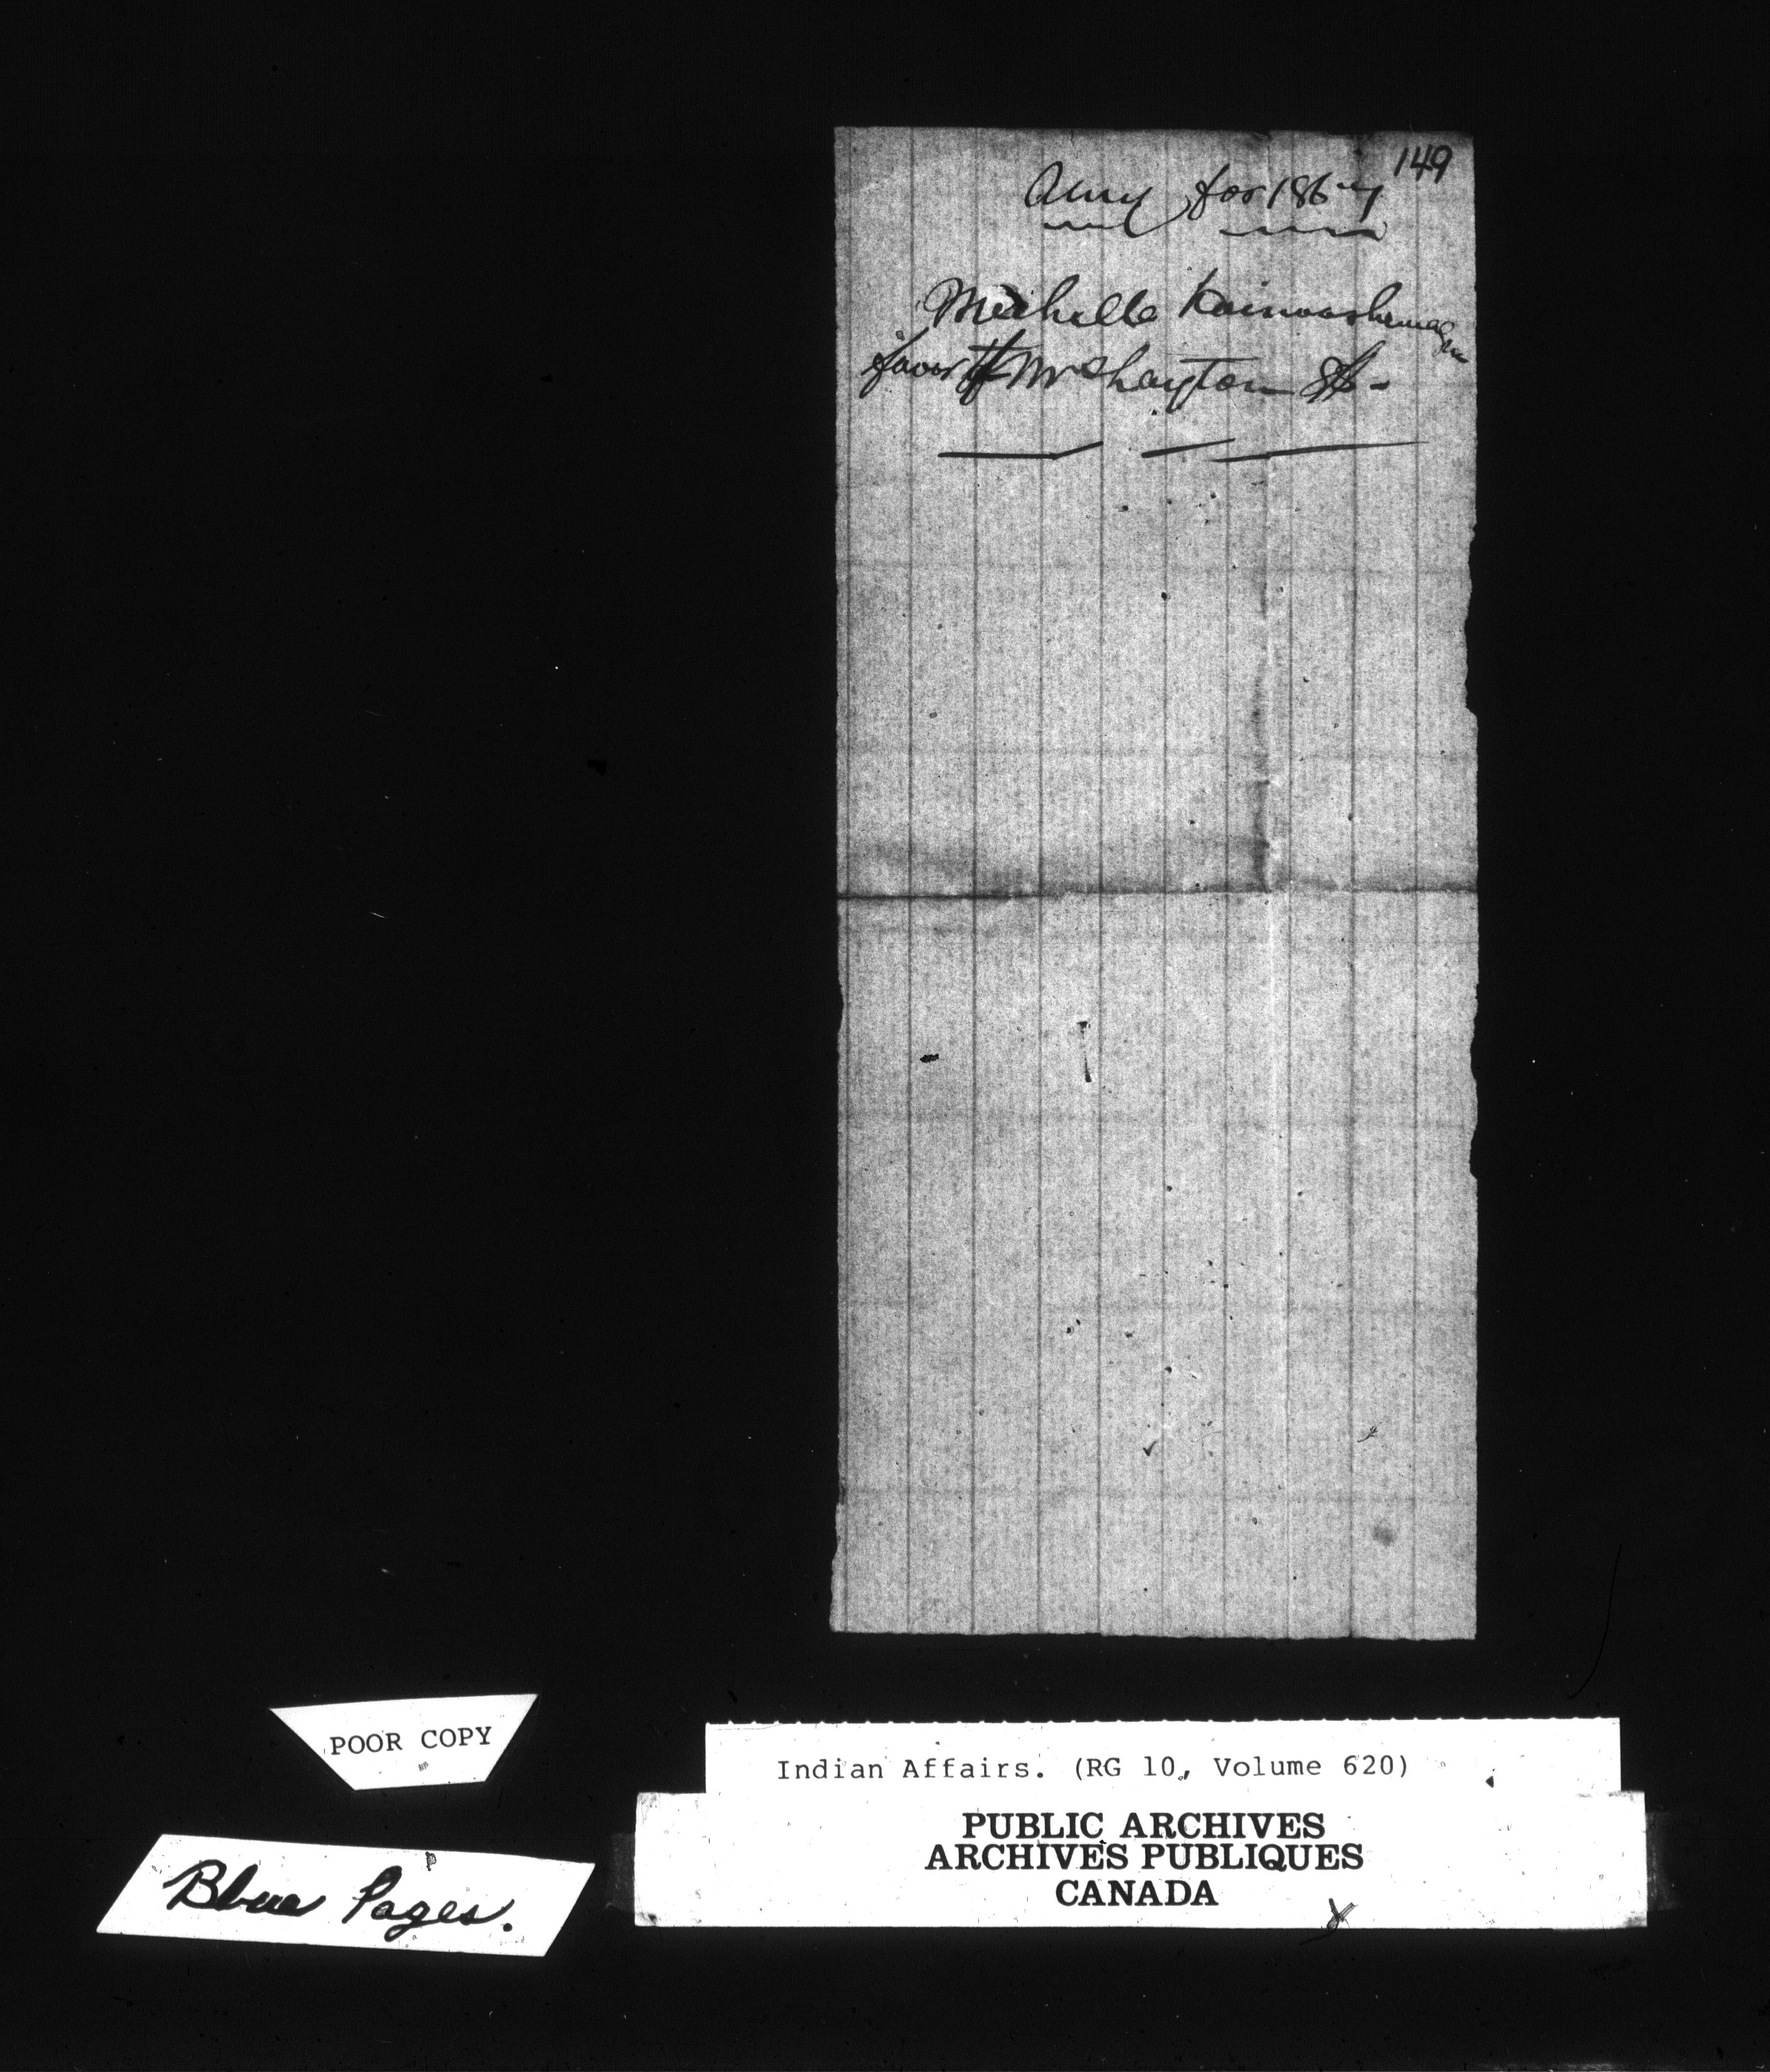 149
for 1867
Michelle
favor Mr
POOR COPY
Indian Affairs. (RG 10, Volume 620)
PUBLIC ARCHIVES
ARCHIVES PUBLIQUES
CANADA
Blue Pages.